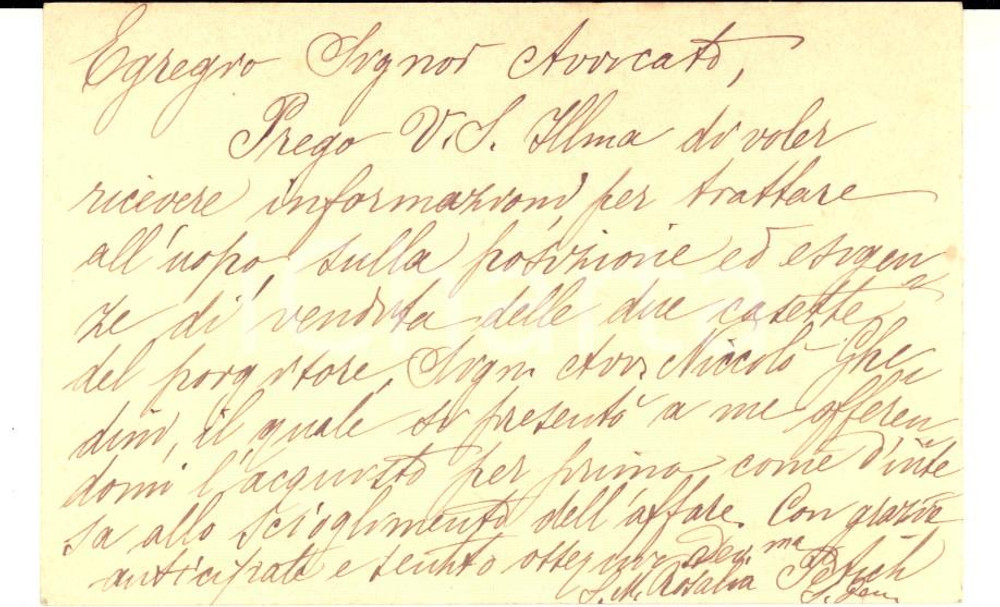 Egregio Signor Avvocato,
Prego V. S. Illma di voler
ricevere informazioni per trattare
all'uopo, sulla posizione ed esigen
ze di vendita delle due casette
del porgitore, Sign. Avv. Niccolò Ghe
dini, il quale si presentò a me offeren
domi l'acquisto per primo come d'inte
sa allo scioglimento dell'affare. Con grazie
anticipate e sentito ossequio Dev.ma
S. M. Rosalia Petich